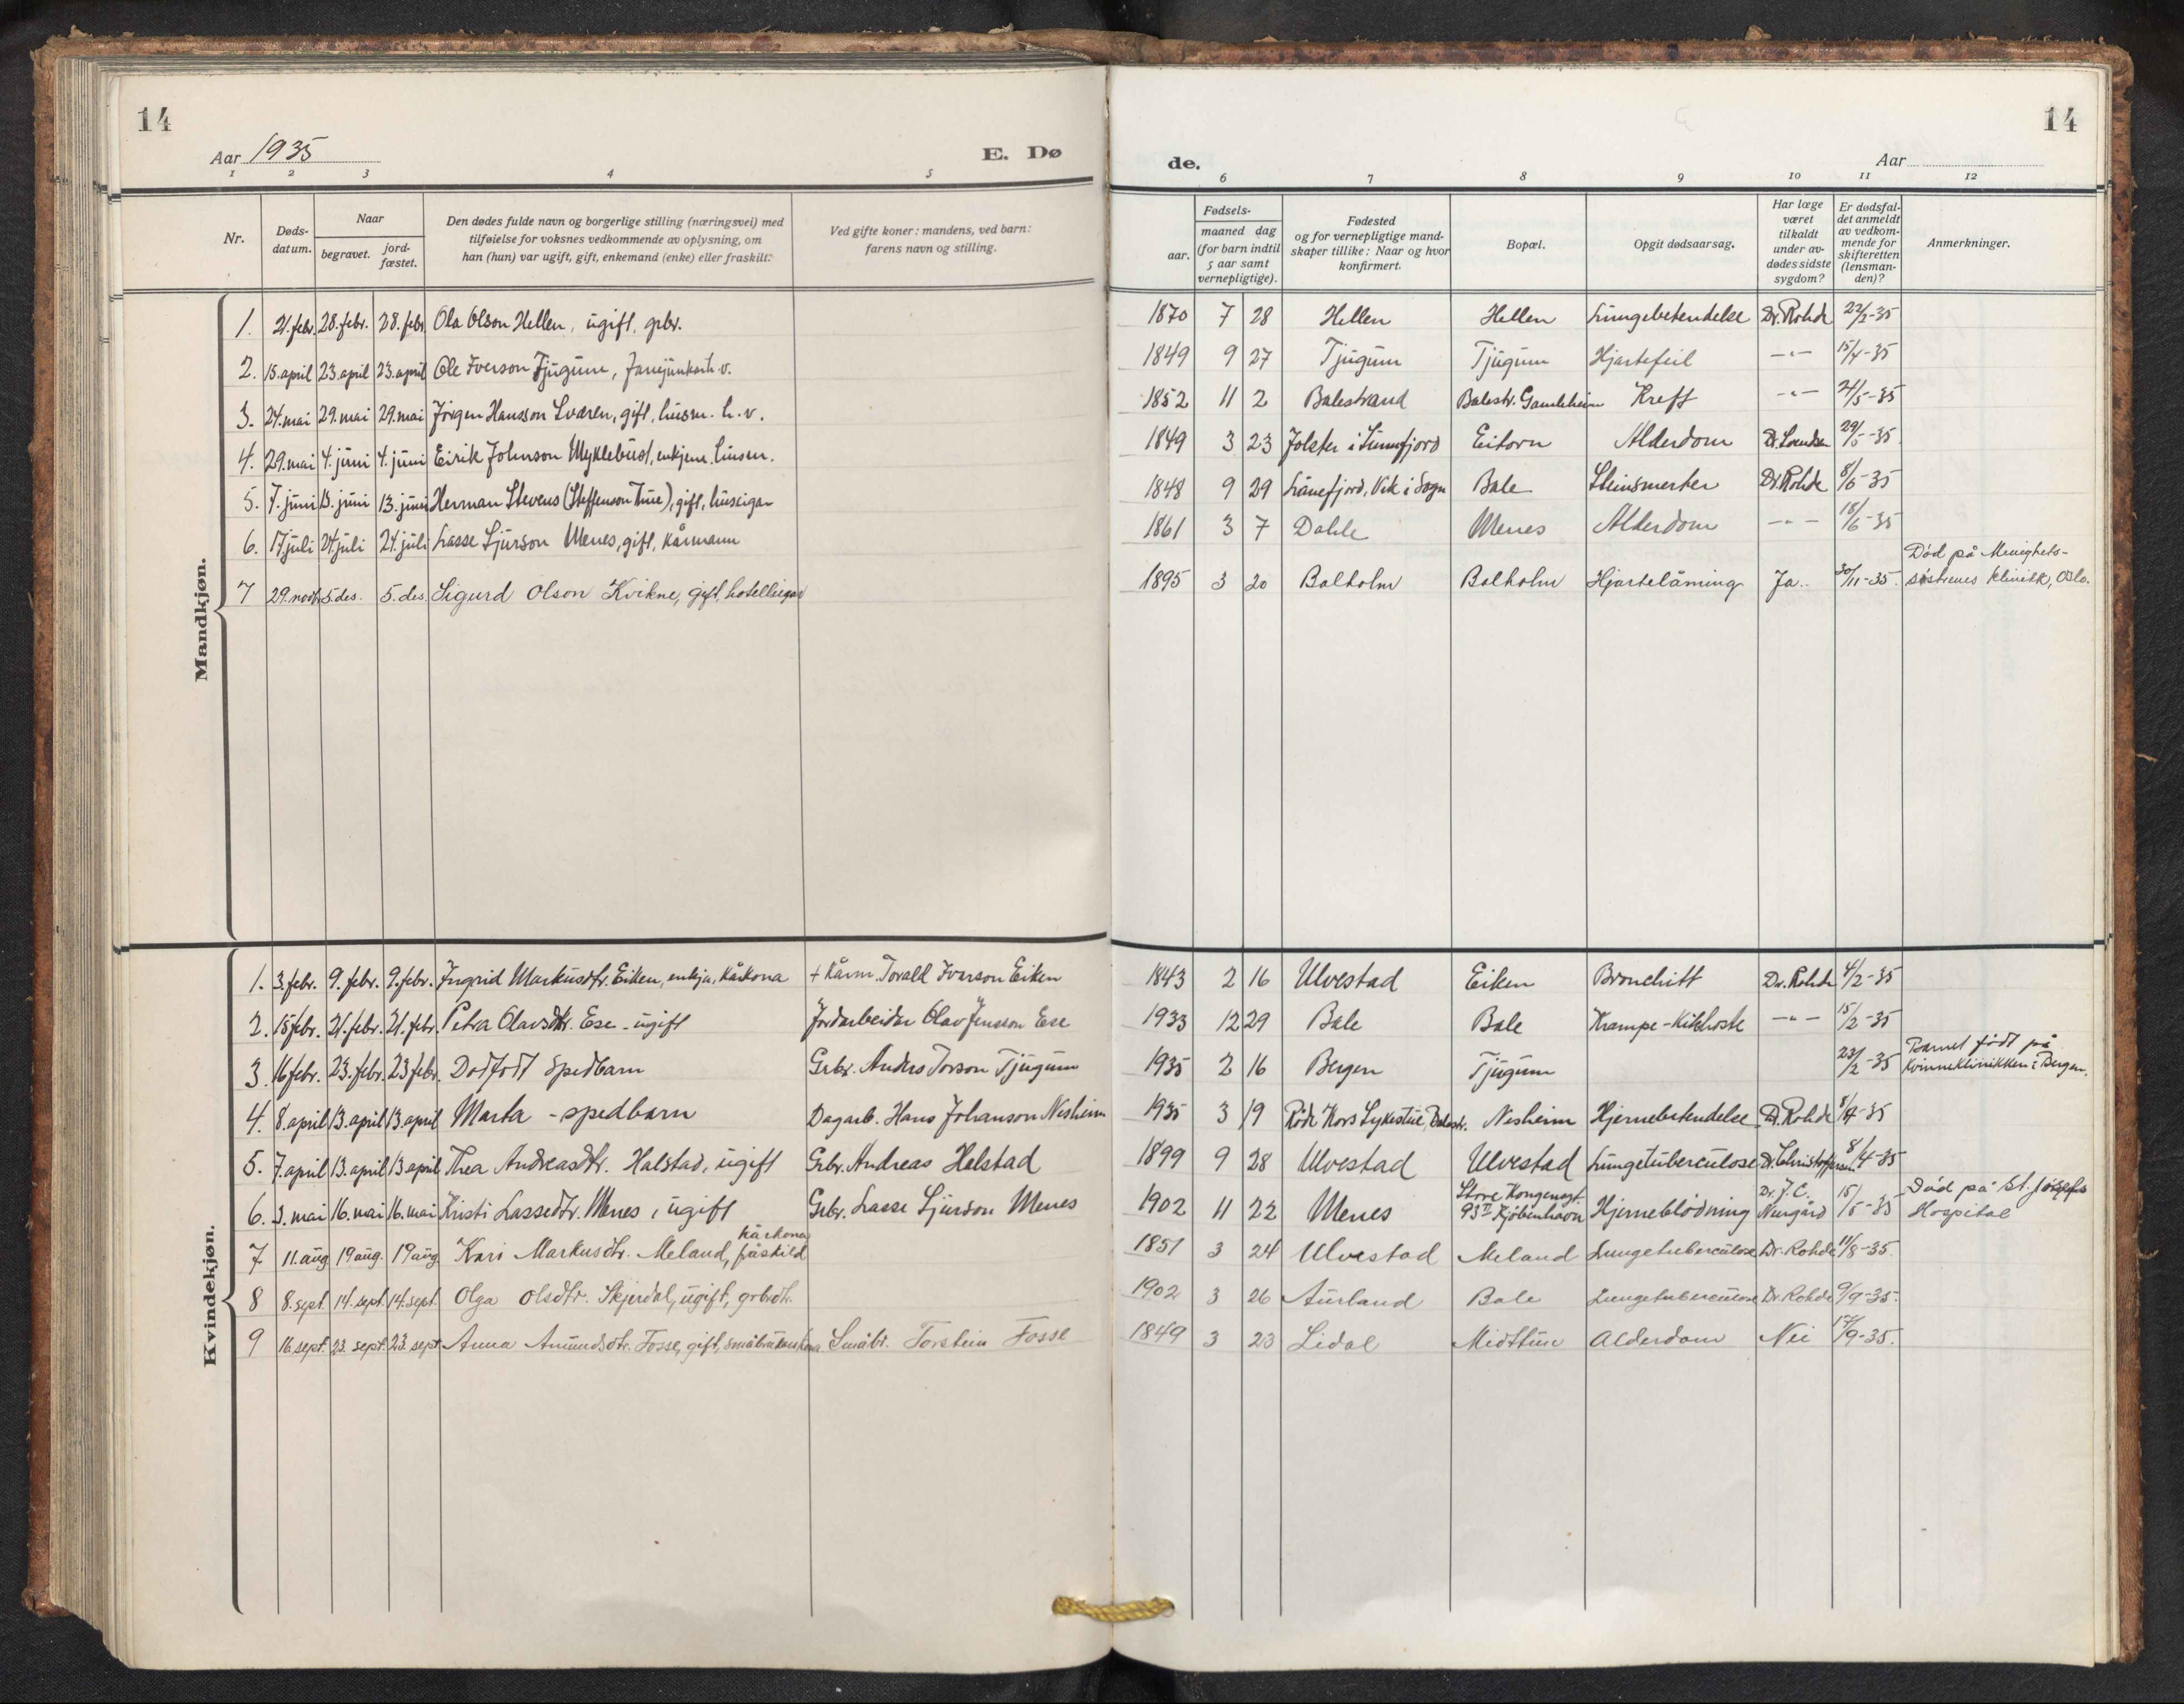 14
Aar 1935
E. Dø
1 2 3 4 5
Nr.
Døds-
datum.
Naar
begravet.
jord-
fæstet.
Den dødes fulde navn og borgerlige stilling (næringsvei) med
tilføielse for voksnes vedkommende av oplysning, om
han (hun) var ugift, gift, enkemand (enke) eller fraskilt.
Ved gifte koner: mandens, ved barn:
farens navn og stilling.
Mandkjøn.
1. 21. febr. 28. febr. 28. febr Ola Olson Hellen, ugift, grbr.
2. 15. april 23. april 23. april Ole Iverson Tjugum,
3. 24. mai 29. mai 29. mai Jörgen Hansson Svären, gift, husm. h. v.
4. 29. mai 4. juni 4. juni Eirik Johnson Myklebust, enkjem. husm.
5. 7. juni 13. juni 13. juni Herman Stevens (Steffenson Tue), gift, huseigar
6. 17 juli 24 juli 24. juli Lasse Sjurson Menes, gift, Kårmann
7 29. novbr. 5. des. 5. des. Sigurd Olson Kvikne, gift, hotelleigar
Kvindekjøn.
1. 3. febr. 9. febr. 9. febr. Ingrid Markusdtr. Eiken, enkja, Kårkona + Kårm. Torald Iverson Eiken
2. 15 febr. 21. febr. 21. febr. Petra Olavsdtr. Ese - ugift Jordarbeidar Olav Jensson Ese
3. 16 febr. 23. febr. 23 febr. Dødfødt Spedbarn Grbr. Anders Torson Tjugum
4. 8. april 13. april 13. april Marta - spedbarn Dagarb. Hans Johanson Nesheim
5. 7. april 13. april 13 april Thea Andreasdtr. Halstad, ugift Grbr. Andreas Helstad
6. 3. mai 16. mai 16. mai Kristi Lassedtr. Menes, ugift Grbr. Lasse Sjurson Menes
kårkona
7 11. aug 19 aug. 19 aug. Kari Markusdtr. Meland, fråskild
8 8. sept. 14. sept. 14. sept. Olga Olsdtr. Skjerdal, ugift, grbrdtr.
9 16. sept. 23. sept. 23. sept Anna Amundsdtr. Fosse, gift, småbrukarkona Småbr. Torstein Fosse
14
de.
Aar
6 7 8 9 10 11 12
Fødsels-
aar.
maaned dag
(for barn indtil
5 aar samt
vernepligtige).
Fødested
og for vernepligtige mand-
skaper tillike: Naar og hvor
konfirmert.
Bopæl.
Opgit dødsaarsag.
Har læge
været
tilkaldt
under av-
dødes sidste
sygdom?
Er dødsfal-
det anmeldt
av vedkom-
mende for
skifteretten
(lensman-
den)?
Anmerkninger.
1870 7 28 Hellen Hellen Lungebetendelse Dr. Rohde 22/2-35
1849 9 27 Tjugum Tjugum Hjartefeil -"- 15/4-35
1852 11 2 Balestrand Balestr. Gamleheim Kreft -"- 24/5-35
1849 3 23 Jolster i Sunnfjord Eitorn Alderdom 29/5-35
1848 9 29 Lånefjord, Vik i Sogn Bale Steinsmerter Dr. Rohde 8/6-35
1861 3 7 Dahle Menes Alderdom -"- 18/6-35
Död på Menighets-
1895 3 20 Balholm Balholm Hjartelåming Ja.. 30/11-35. søstrenes klinikk, Oslo.
1843 2 16 Ulvestad Eiken Bronchitt Dr. Rohde 4/2-35
1933 12 29 Bale Bale Krampe-Kikhoste -"- 15/2-35
1935 2 16 Bergen Tjugum 23/2-35 Barnet född på
Kvinneklinikken i Bergen.
1935 3 19 Röde Kors Sykestue, Balestr. Nesheim Hjernebetendelse Dr. Rohde 8/4-35
1899 9 28 Ulvestad Ulvestad Lungetuberculose Dr. Christoffersen 8/4-35
1902 11 22 Menes Store Kongensgt. 93 II Kjöbenhavn Hjerneblödning Dr. J. C. 15/5-35 Död på St. Josephs
Hospital
1851 3 24 Ulvestad Meland Lungetuberculose Dr. Rohde 11/8-35.
1902 3 26 Aurland Bale Lungetuberculose Dr. Rohde 9/9-35.
1849 3 23 Lidal Midttun Alderdom Nei 17/9-35.